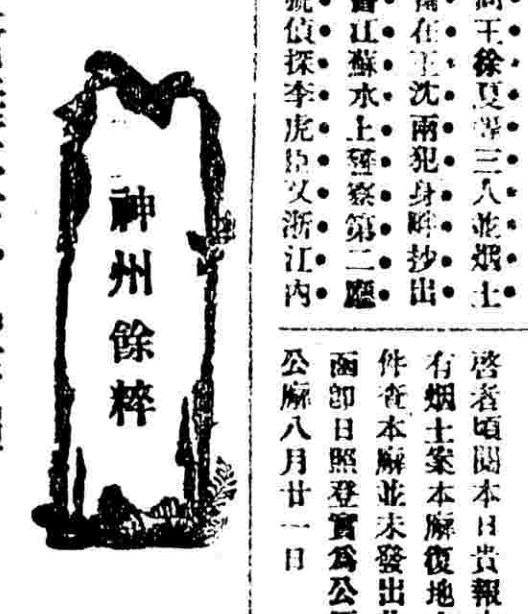 王徐夏三人並烟土
在王沈兩犯身畔抄出
江蘇水上警察第二廳
偵探李虎臣又浙江內
啓者頃閱本日貴報
有烟土案本廨復地
件查本廨並未發出
函卽日照登實爲公
公廨八月廿一日
神州餘粹